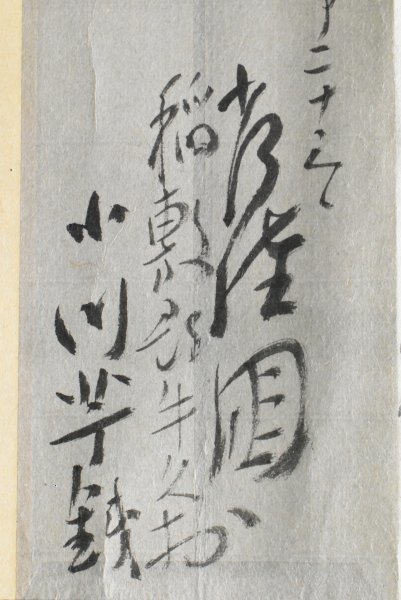 二十三日
常陸国
稲敷郡牛久村
小川芋銭